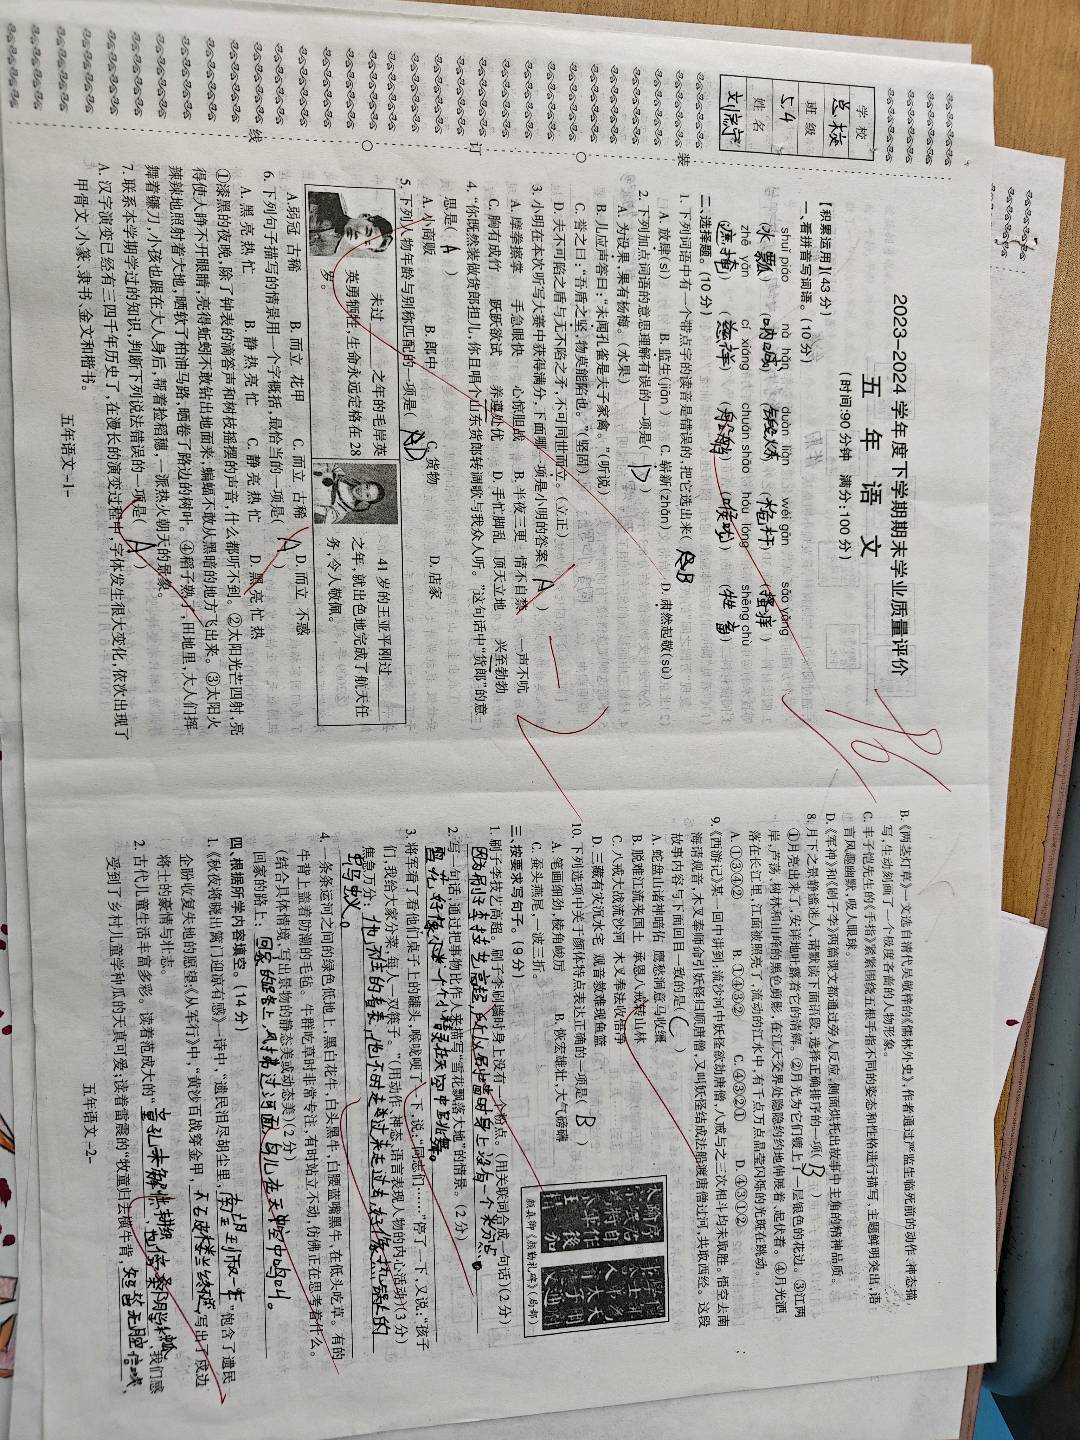 学校 总校
班级 54
姓名
装
订
线
2023-2024学年度下学期期末学业质量评价
五年语文
(时间:90分钟 满分:100分)
86
【积累运用】(43分)
一、看拼音写词语。(10分)
shuǐ piáo nà hǎn duàn liàn wéi gān sāo yǎng
(水瓢) (呐喊) (锻炼) (桅杆) (搔痒)
zhē yǎn cí xiáng chuán shāo hóu lóng shēng chù
(遮掩) (慈祥) (船艄) (喉咙) (牲畜)
二、选择题。(10分)
1.下列词语中有一个带点字的读音是错误的,把它选出来( B )
A.放肆(sì) B.监生(jiān) C.崭新(zhǎn) D.肃然起敬(sù)
2.下列加点词语的意思理解有误的一项是( D )
A.为设果,果有杨梅。(水果)
B.儿应声答曰:“未闻孔雀是夫子家禽。”(听说)
C.誉之曰:“吾盾之坚,物莫能陷也。”(坚固)
D.夫不可陷之盾与无不陷之矛,不可同世而立。(立正)
3.小明在本次听写大赛中获得满分,下面哪一项是小明的答案( A )
A.摩拳擦掌 手急眼快 心惊胆战 B.半夜三更 情不自禁 一声不吭
C.胸有成竹 跃跃欲试 养遵处优 D.手忙脚乱 顶天立地 兴至勃勃
4.“你既然装做货郎担儿,你且唱个山东货郎转调歌与我众人听。”这句话中“货郎”的意
思是( A )
A.小商贩 B.郎中 C.货物 D.店家
5.下列人物年龄与别称匹配的一项是( D )
未过____之年的毛岸英
英勇牺牲,生命永远定格在28
岁。
41岁的王亚平刚过____
之年,就出色地完成了航天任
务,令人敬佩。
A.弱冠 古稀 B.而立 花甲 C.而立 古稀 D.而立 不惑
6.下列句子描写的情景用一个字概括,最恰当的一项是( A )
A.黑 亮 热 忙 B.静 热 亮 忙 C.静 亮 热 忙 D.黑 亮 忙 热
①漆黑的夜晚,除了钟表的滴答声和树枝摇摆的声音,什么都听不到。②太阳光芒四射,亮
得使人睁不开眼睛,亮得蚯蚓不敢钻出地面来,蝙蝠不敢从黑暗的地方飞出来。③太阳火
辣辣地照射着大地,晒软了柏油马路,晒卷了路边的树叶。④稻子熟了,田地里,大人们挥
舞着镰刀,小孩也跟在大人身后,帮着捡稻穗,一派热火朝天的景象。
7.联系本学期学过的知识,判断下列说法错误的一项是( A )
A.汉字演变已经有三四千年历史了,在漫长的演变过程中,字体发生很大变化,依次出现了
甲骨文、小篆、隶书、金文和楷书。
五年语文-1-
B.《两茎灯草》一文选自清代吴敬梓的《儒林外史》,作者通过严监生临死前的动作、神态描
写,生动刻画了一个极度吝啬的人物形象。
C.丰子恺先生的《手指》紧紧围绕五根手指不同的姿态和性格进行描写,主题鲜明突出,语
言风趣幽默,吸人眼球。
D.《军神》和《刷子李》两篇课文都通过旁人反应,侧面烘托出故事中主角的精神品质。
8.月下之景静谧迷人,请默读下面语段,选择正确排序的一项( B )
①月亮出来了,安详地吐露着它的清辉。②月光为它们镀上了一层银色的花边。③江两
岸,芦荡、树林和山峰的黑色剪影,在江天交界处隐隐约约地伸展着,起伏着。④月光洒
落在长江里,江面被照亮了,流动的江水中,有千点万点晶莹闪烁的光斑在跳动。
A.①③④② B.①④③② C.④③②① D.④③①②
9.《西游记》某一回中讲到:流沙河中妖怪欲劫唐僧,八戒与之三次相斗均未取胜。悟空去南
海请观音,木叉奉师命引妖怪归顺唐僧,又叫妖怪结成法船渡唐僧过河,共取西经。这段
故事内容与下面回目一致的是( C )
A.蛇盘山诸神暗佑 鹰愁涧意马收缰
B.陷难江流来国土 承恩八戒转山林
C.八戒大战流沙河 木叉奉法收悟净
D.三藏有灾沉水宅 观音救难现鱼篮
10.下列选项中关于颜体特点表达正确的一项是( B )
A.笔画细劲,棱角峻厉 B.恢宏雄壮,大气磅礴
C.蚕头燕尾,一波三折。
颜真卿《颜勤礼碑》(局部)
三、按要求写句子。(9分)
1.刷子李技艺高超。刷子李刷墙时身上没有一个粉点。(用关联词合成一句话)(2分)
2.写一句话,通过把事物比作人来描写“雪花飘落大地”的情景。(2分)
3.将军吞了吞他们桌子上的罐头,喉咙哽了一下,说:“同志们……”停了一下,又说,“孩子
们,我给大家分菜,每人一双筷子。”(用动作、神态、语言表现人物的内心活动)(3分)
蚂蚁。
4.一条条运河之间的绿色低地上,黑白花牛,白头黑牛,白腰蓝嘴黑牛,在低头吃草。有的
牛背上盖着防潮的毛毡。牛群吃草时非常专注,有时站立不动,仿佛正在思考着什么。
(结合具体情境,写出景物的静态美或动态美)(2分)
回家的路上:
四、根据所学内容填空。(14分)
1.《秋夜将晓出篱门迎凉有感》一诗中,“遗民泪尽胡尘里,南望王师又一年”饱含了遗民
企盼收复失地的愿望;《从军行》中,“黄沙百战穿金甲,不破楼兰终不还”写出了戍边
将士的豪情与壮志。
2.古代儿童生活丰富多彩。读着范成大的“童孙未解供耕织,也傍桑阴学种瓜”,我们感
受到了乡村儿童学种瓜的天真可爱;读着雷震的“牧童归去横牛背,短笛无腔信口吹”,
五年语文-2-